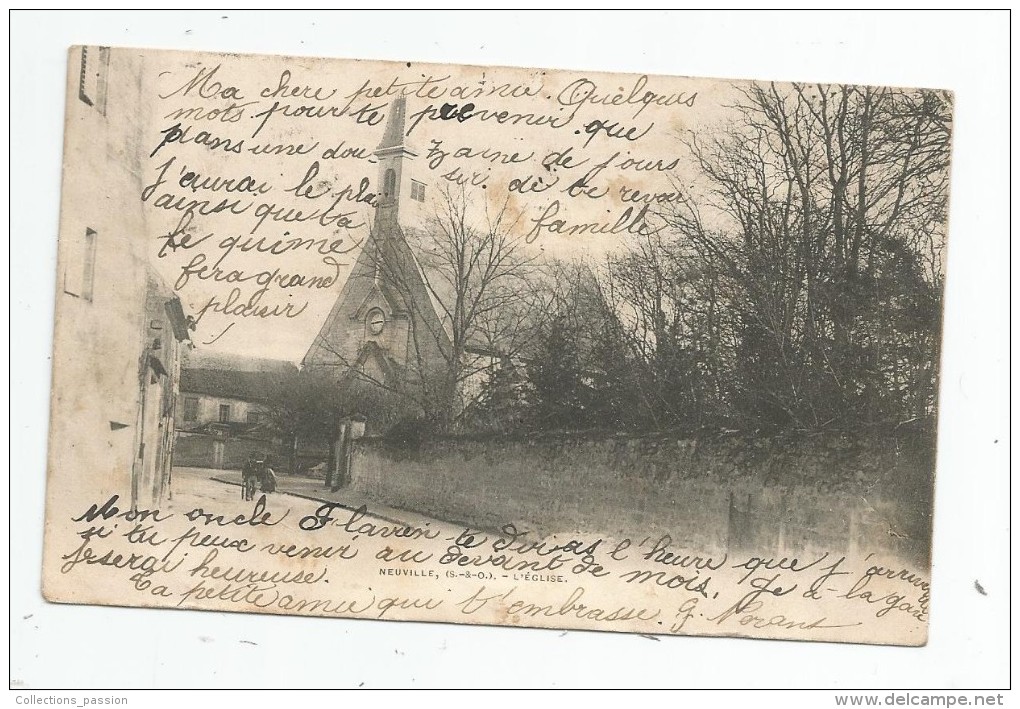 Ma chere petite amie Quelques
mots pour te prevenir que
dans une douzaine de jours
J'aurai le plaisir de te revoir
ainsi que ta famille
ce qui me
fera grand
plaisir
Mon oncle Flavien te dira l'heure que j'arriverai
si tu peux venir au devant de mois, Je a-la gare
Je serai heureuse.
NEUVILLE, (S.-&-O.). - L'ÉGLISE.
Ta petite amie qui t'embrasse G.
Collections_passion
http://www.delcampe.net